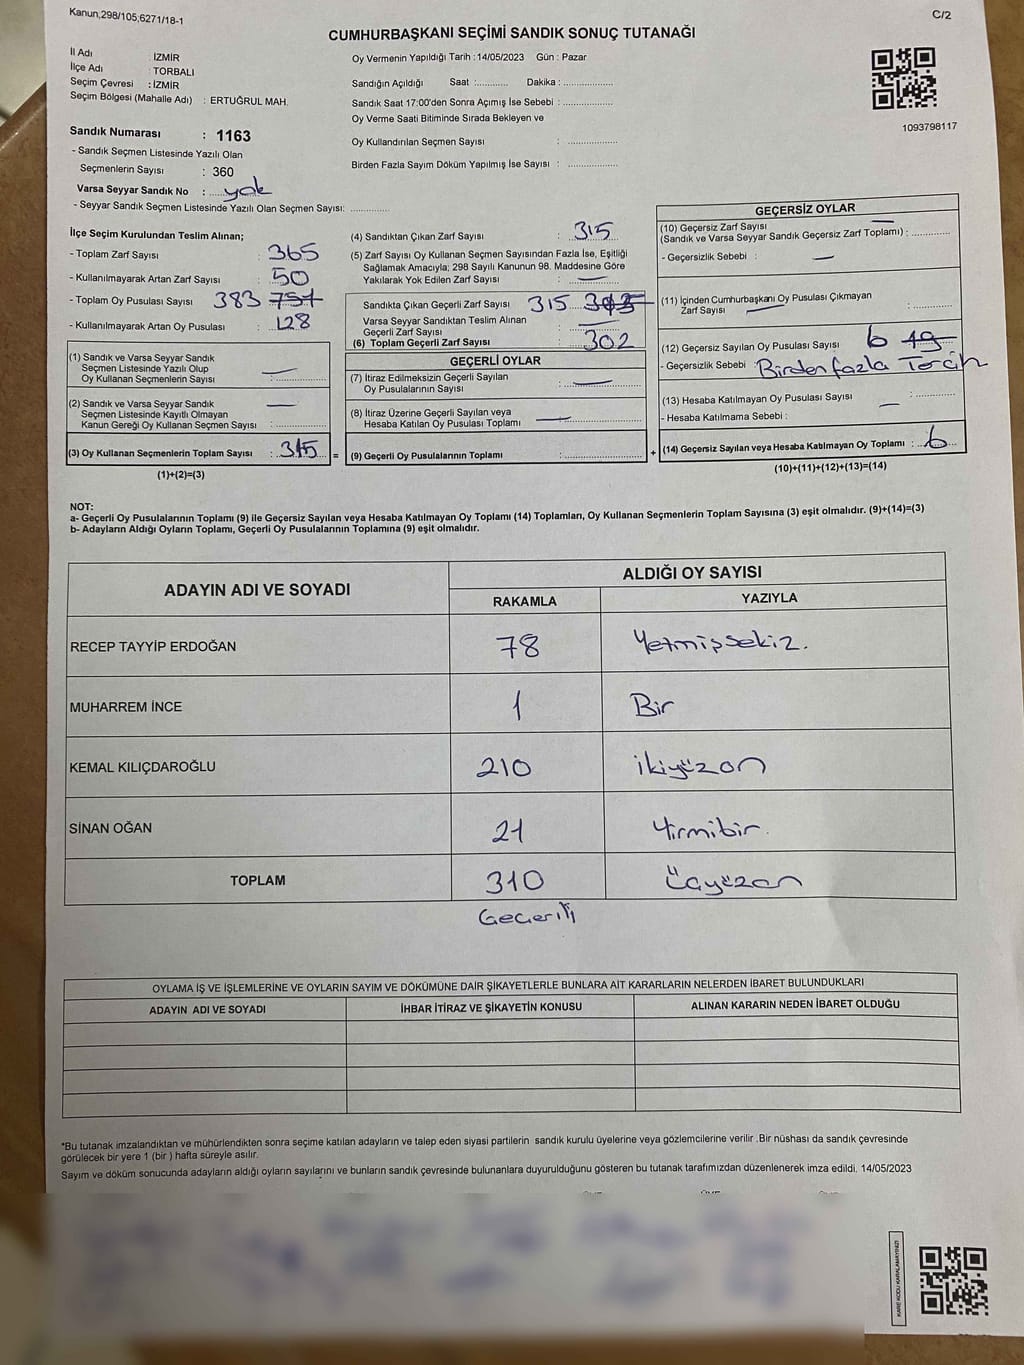 Kanun,298/105,6271/18-1
C/2
CUMHURBAŞKANI SEÇİMİ SANDIK SONUÇ TUTANAĞI
İl Adı : İZMİR
İlçe Adı : TORBALI
Seçim Çevresi : İZMİR
Seçim Bölgesi (Mahalle Adı) : ERTUĞRUL MAH.
Oy Vermenin Yapıldığı Tarih : 14/05/2023 Gün : Pazar
Sandığın Açıldığı Saat :............ Dakika :...................
Sandık Saat 17:00'den Sonra Açımış İse Sebebi :...................
Oy Verme Saati Bitiminde Sırada Bekleyen ve
Oy Kullandırılan Seçmen Sayısı : ...................
Birden Fazla Sayım Döküm Yapılmış İse Sayısı : ...................
1093798117
Sandık Numarası : 1163
- Sandık Seçmen Listesinde Yazılı Olan
Seçmenlerin Sayısı : 360
Varsa Seyyar Sandık No : yok
- Seyyar Sandık Seçmen Listesinde Yazılı Olan Seçmen Sayısı: ...............
İlçe Seçim Kurulundan Teslim Alınan;
- Toplam Zarf Sayısı : 365
- Kullanılmayarak Artan Zarf Sayısı : 50
- Toplam Oy Pusulası Sayısı 383 757
- Kullanılmayarak Artan Oy Pusulası : 128
(1) Sandık ve Varsa Seyyar Sandık
Seçmen Listesinde Yazılı Olup
Oy Kullanan Seçmenlerin Sayısı : —
(2) Sandık ve Varsa Seyyar Sandık
Seçmen Listesinde Kayıtlı Olmayan
Kanun Gereği Oy Kullanan Seçmen Sayısı : —
(3) Oy Kullanan Seçmenlerin Toplam Sayısı : 315
(1)+(2)=(3)
=
(4) Sandıktan Çıkan Zarf Sayısı : 315
(5) Zarf Sayısı Oy Kullanan Seçmen Sayısından Fazla İse, Eşitliği
Sağlamak Amacıyla; 298 Sayılı Kanunun 98. Maddesine Göre
Yakılarak Yok Edilen Zarf Sayısı : —
Sandıkta Çıkan Geçerli Zarf Sayısı 315
Varsa Seyyar Sandıktan Teslim Alınan
Geçerli Zarf Sayısı : —
(6) Toplam Geçerli Zarf Sayısı : 302
GEÇERLİ OYLAR
(7) İtiraz Edilmeksizin Geçerli Sayılan
Oy Pusulalarının Sayısı : —
(8) İtiraz Üzerine Geçerli Sayılan veya
Hesaba Katılan Oy Pusulası Toplamı : —
(9) Geçerli Oy Pusulalarının Toplamı :...................
+
GEÇERSİZ OYLAR
(10) Geçersiz Zarf Sayısı —
(Sandık ve Varsa Seyyar Sandık Geçersiz Zarf Toplamı) : ............
- Geçersizlik Sebebi : —
(11) İçinden Cumhurbaşkanı Oy Pusulası Çıkmayan
Zarf Sayısı — :............
(12) Geçersiz Sayılan Oy Pusulası Sayısı 6 19
- Geçersizlik Sebebi : Birden fazla Tercih
(13) Hesaba Katılmayan Oy Pusulası Sayısı : ............
- Hesaba Katılmama Sebebi : —
(14) Geçersiz Sayılan veya Hesaba Katılmayan Oy Toplamı : 6
(10)+(11)+(12)+(13)=(14)
NOT:
a- Geçerli Oy Pusulalarının Toplamı (9) ile Geçersiz Sayılan veya Hesaba Katılmayan Oy Toplamı (14) Toplamları, Oy Kullanan Seçmenlerin Toplam Sayısına (3) eşit olmalıdır. (9)+(14)=(3)
b- Adayların Aldığı Oyların Toplamı, Geçerli Oy Pusulalarının Toplamına (9) eşit olmalıdır.
ADAYIN ADI VE SOYADI
ALDIĞI OY SAYISI
RAKAMLA YAZIYLA
RECEP TAYYİP ERDOĞAN 78 Yetmişsekiz.
MUHARREM İNCE 1 Bir
KEMAL KILIÇDAROĞLU 210 ikiyüzon
SİNAN OĞAN 21 Yirmibir.
TOPLAM 310 Üçyüzon
Geçerli
OYLAMA İŞ VE İŞLEMLERİNE VE OYLARIN SAYIM VE DÖKÜMÜNE DAİR ŞİKAYETLERLE BUNLARA AİT KARARLARIN NELERDEN İBARET BULUNDUKLARI
ADAYIN ADI VE SOYADI İHBAR İTİRAZ VE ŞİKAYETİN KONUSU ALINAN KARARIN NEDEN İBARET OLDUĞU
*Bu tutanak imzalandıktan ve mühürlendikten sonra seçime katılan adayların ve talep eden siyasi partilerin sandık kurulu üyelerine veya gözlemcilerine verilir .Bir nüshası da sandık çevresinde
görülecek bir yere 1 (bir ) hafta süreyle asılır.
Sayım ve döküm sonucunda adayların aldığı oyların sayılarını ve bunların sandık çevresinde bulunanlara duyurulduğunu gösteren bu tutanak tarafımızdan düzenlenerek imza edildi, 14/05/2023
KARE KODU KARALAMAYINIZ!